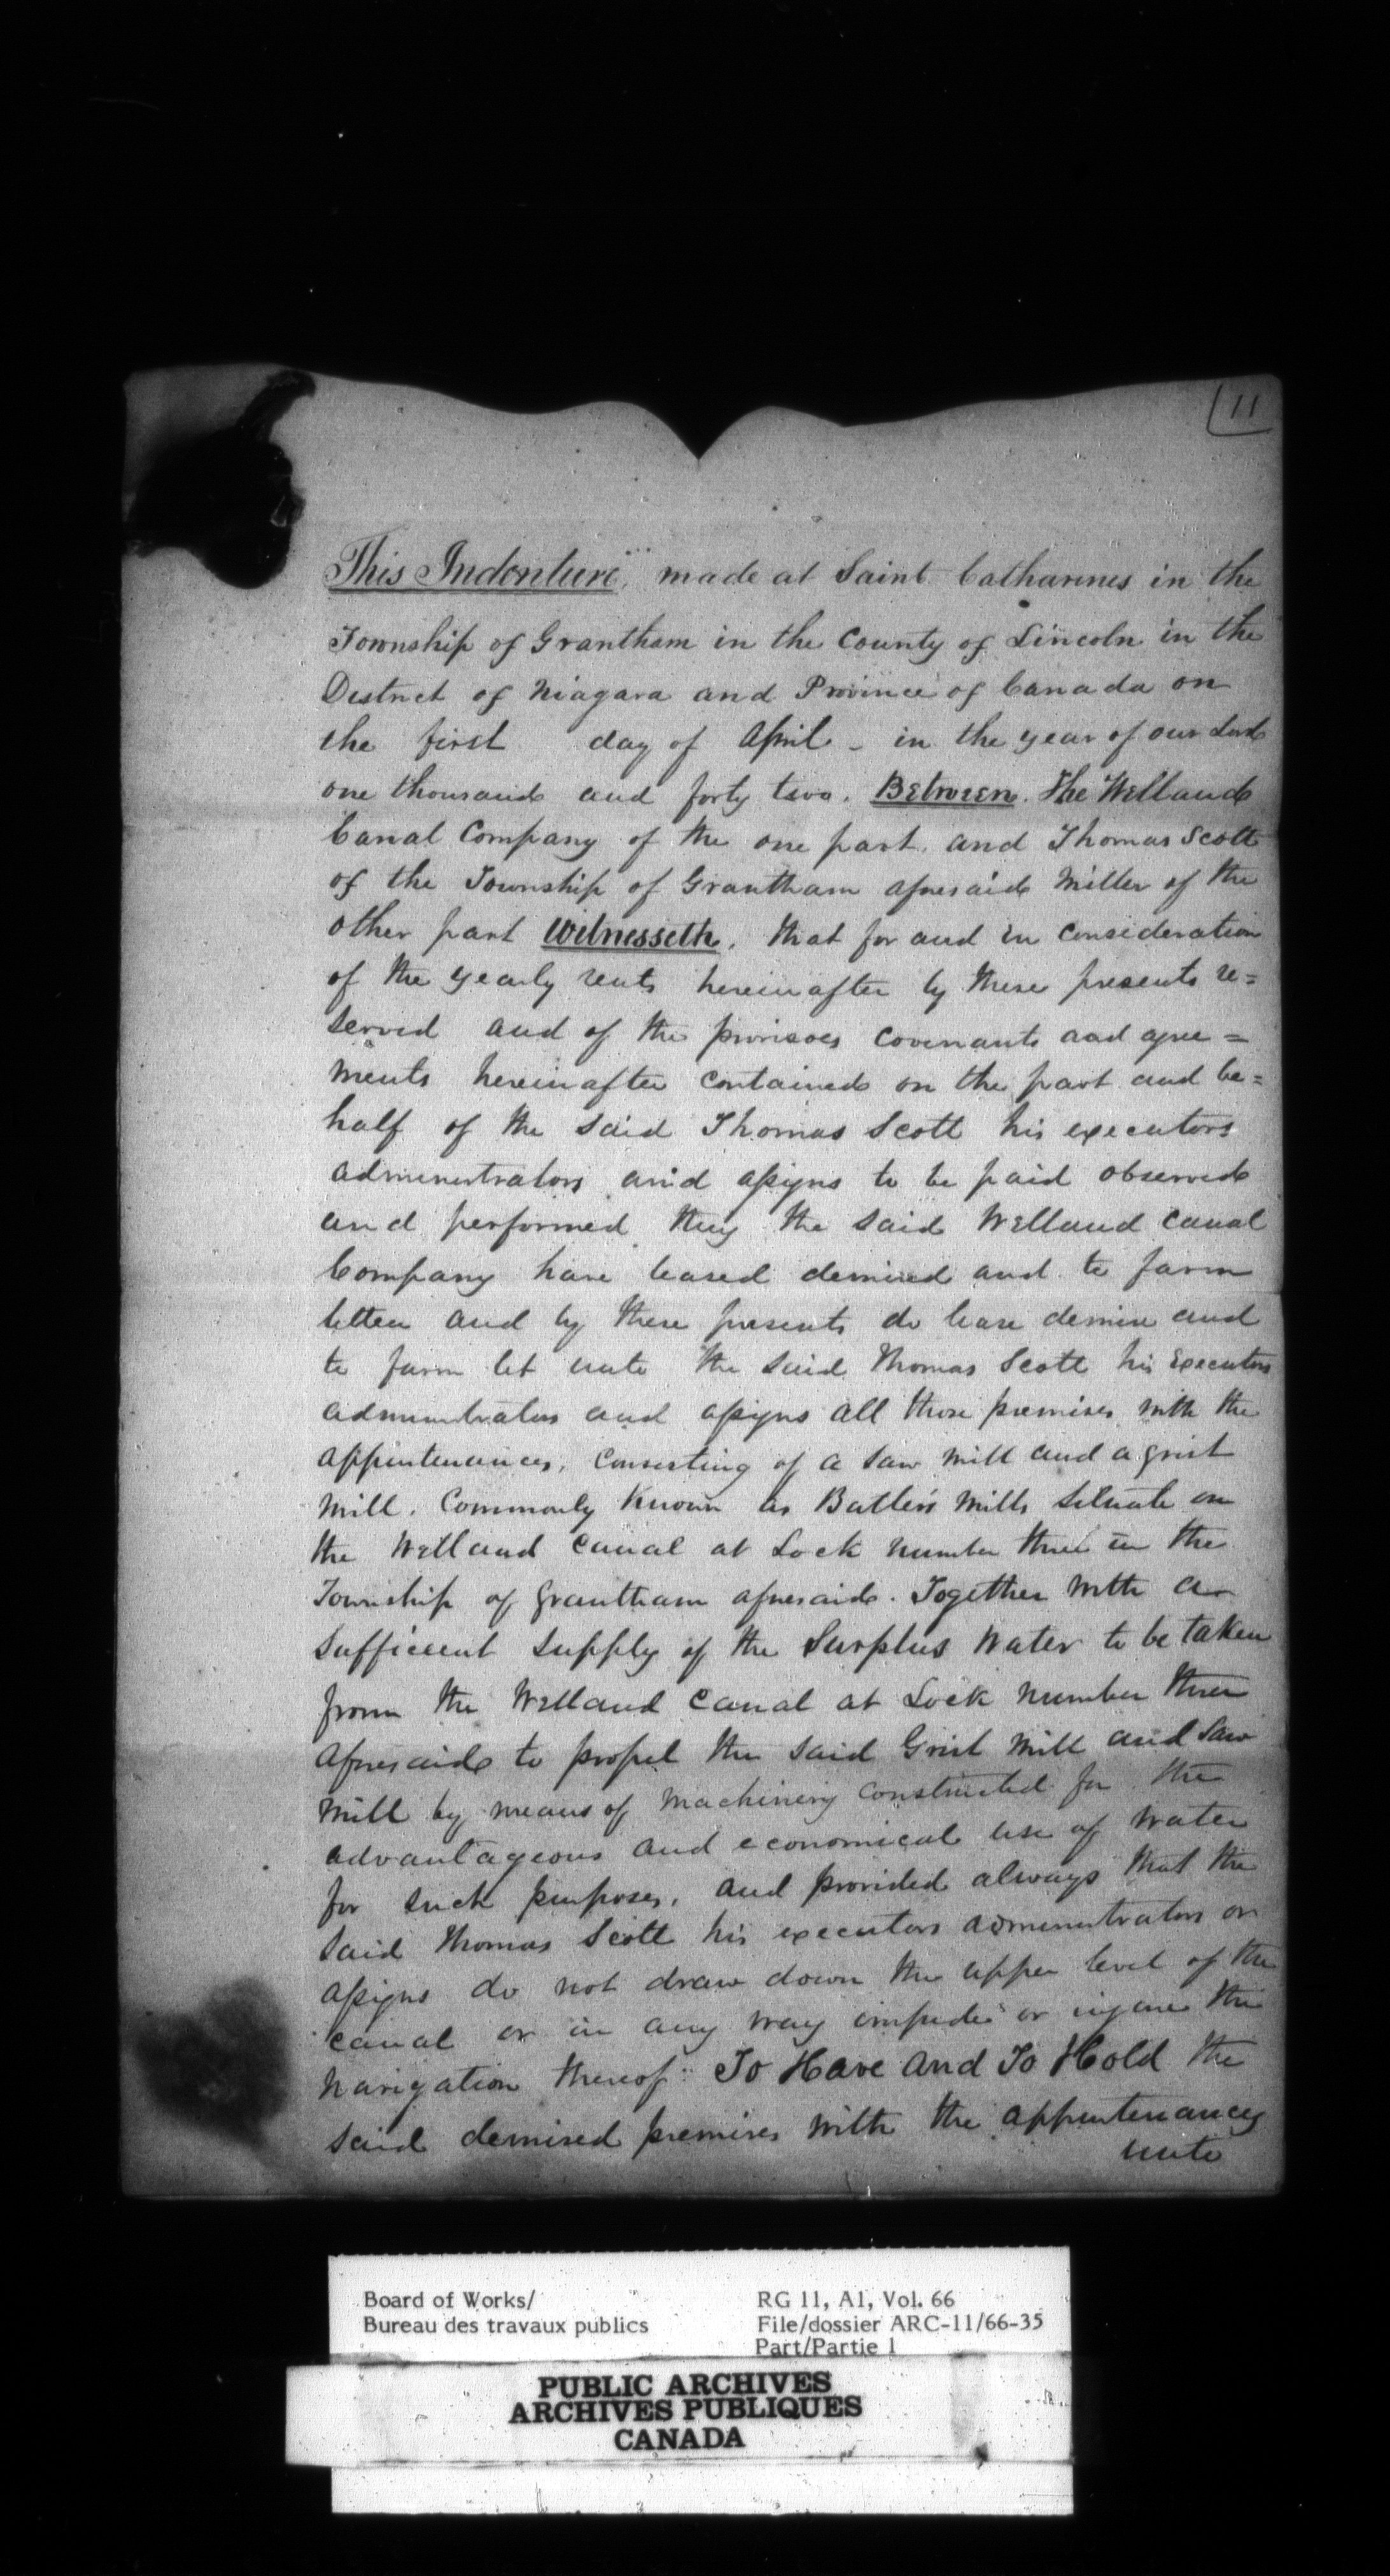 11
This Indenture made at Saint Catharines in the
Township of Grantham in the County of Lincoln in the
District of Niagara and Province of Canada on
the first day of April - in the year of our Lord
one thousand and forty two. Between. The Welland
Canal Company of the one part. and Thomas Scott
of the Township of Grantham aforesaid Miller of the
other part Witnesseth. that for and in consideration
of the yearly rents hereinafter by these presents re=
served and of the provisoes covenants and agree=
ments hereinafter contained on the part and be=
half of the said Thomas Scott his executors
administrators and assigns to be paid observed
and performed they the said Welland Canal
Company have leased demised and to farm
letten and by these presents do lease demise and
to farm let unto the said Thomas Scott his Executors
administrators and assigns all those premises with the
appurtenances, consisting of a saw mill and a grist
mill. Commonly known as Butler's Mills situate on
the Welland Canal at Lock number three in the
Township of Grantham aforesaid. Together with a
sufficient supply of the Surplus Water to be taken
from the Welland Canal at Lock number three
aforesaid to propel the said Grist Mill and Saw
mill by means of Machinery constructed for the
advantageous and economical use of water
for such purposes, and provided always that the
said Thomas Scott his executors administrators or
assigns do not draw down the upper level of the
canal or in any way impede or injure the
navigation thereof: To Have and To Hold the
said demised premises with the appurtenances
unto
Board of Works/
Bureau des travaux publics
RG 11, A1, Vol. 66
File/dossier ARC-11/66-35
Part/Partie 1
PUBLIC ARCHIVES
ARCHIVES PUBLIQUES
CANADA